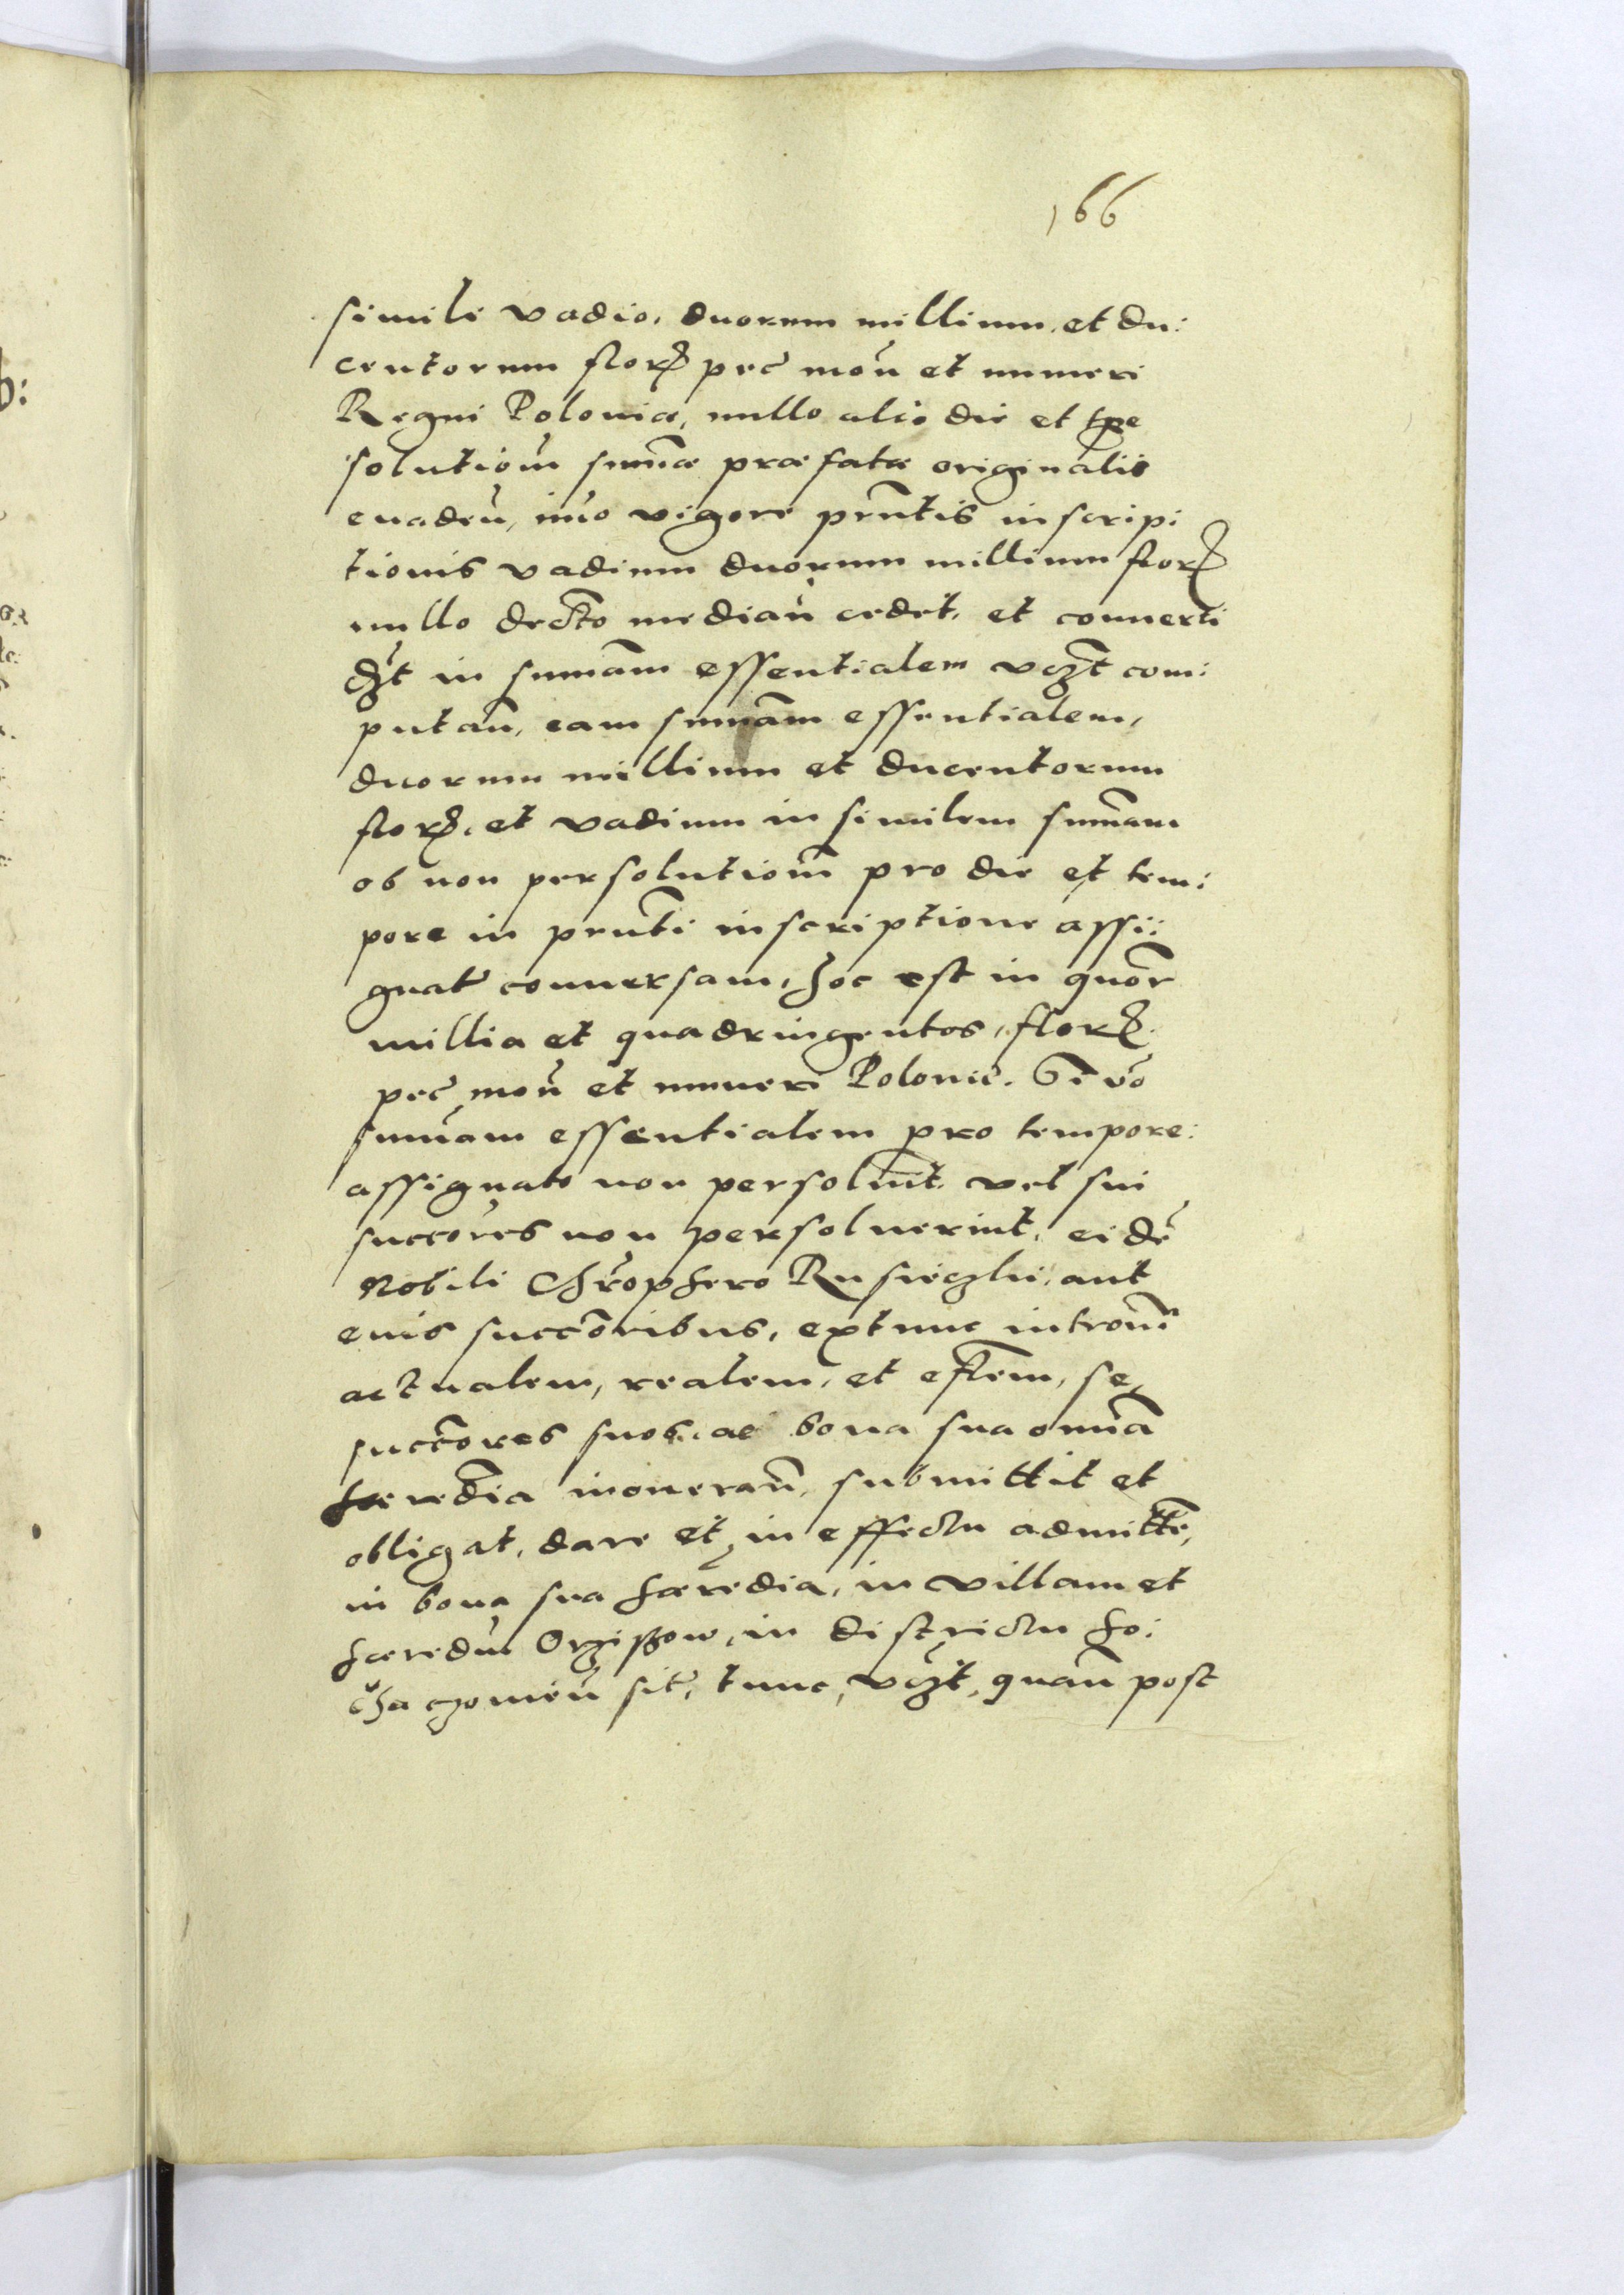 166
simili vadio, duorum millium, et du:
centorum floꝝ pec̃ moñ et numeri
Regni Poloniæ, nullo alio die et tp̃e
solutioñ sum̃æ præfatæ originalis
euadeñ, im̃o vigore pñtis inscrip:
tionis vadium duorum millium floꝝ
nullo decto mediañ cedet, et conuerti
dʒ̃t in sum̃am essentialem vʒ̃t com:
putañ, eam sum̃am essentialem,
duorum millium et ducentorum
floꝝ, et vadium in similem sum̃am
ob non persolutioñ pro die et tem:
pore in pñti inscriptione assi:
gnat̃ conuersam, hoc est in quor̃
millia et quadringentos, floꝝ.
pec̃ moñ et numeri Polonic̃. Si vo͂
sum̃am essentialem pro tempore
assignato non persoluit̃, vel sui
succores̃ non persoluerint, eidẽ
Nobili Chrophero Rusieczki, aut
euis succ̃oribus, extunc introm̃
actualem, realem, et eff̃em, se,
succ̃ores suos, ac bona sua om̃ia
hæred̃ia inonerañ, submittit et
obligat, dare et in effectu admitt̃e,
in bona sua hæred̃ia, in villam et
hæredit̃ Orzissow, in districtu So:
chaczouieñ sit̃, tunc, vʒ̃t, quañ post